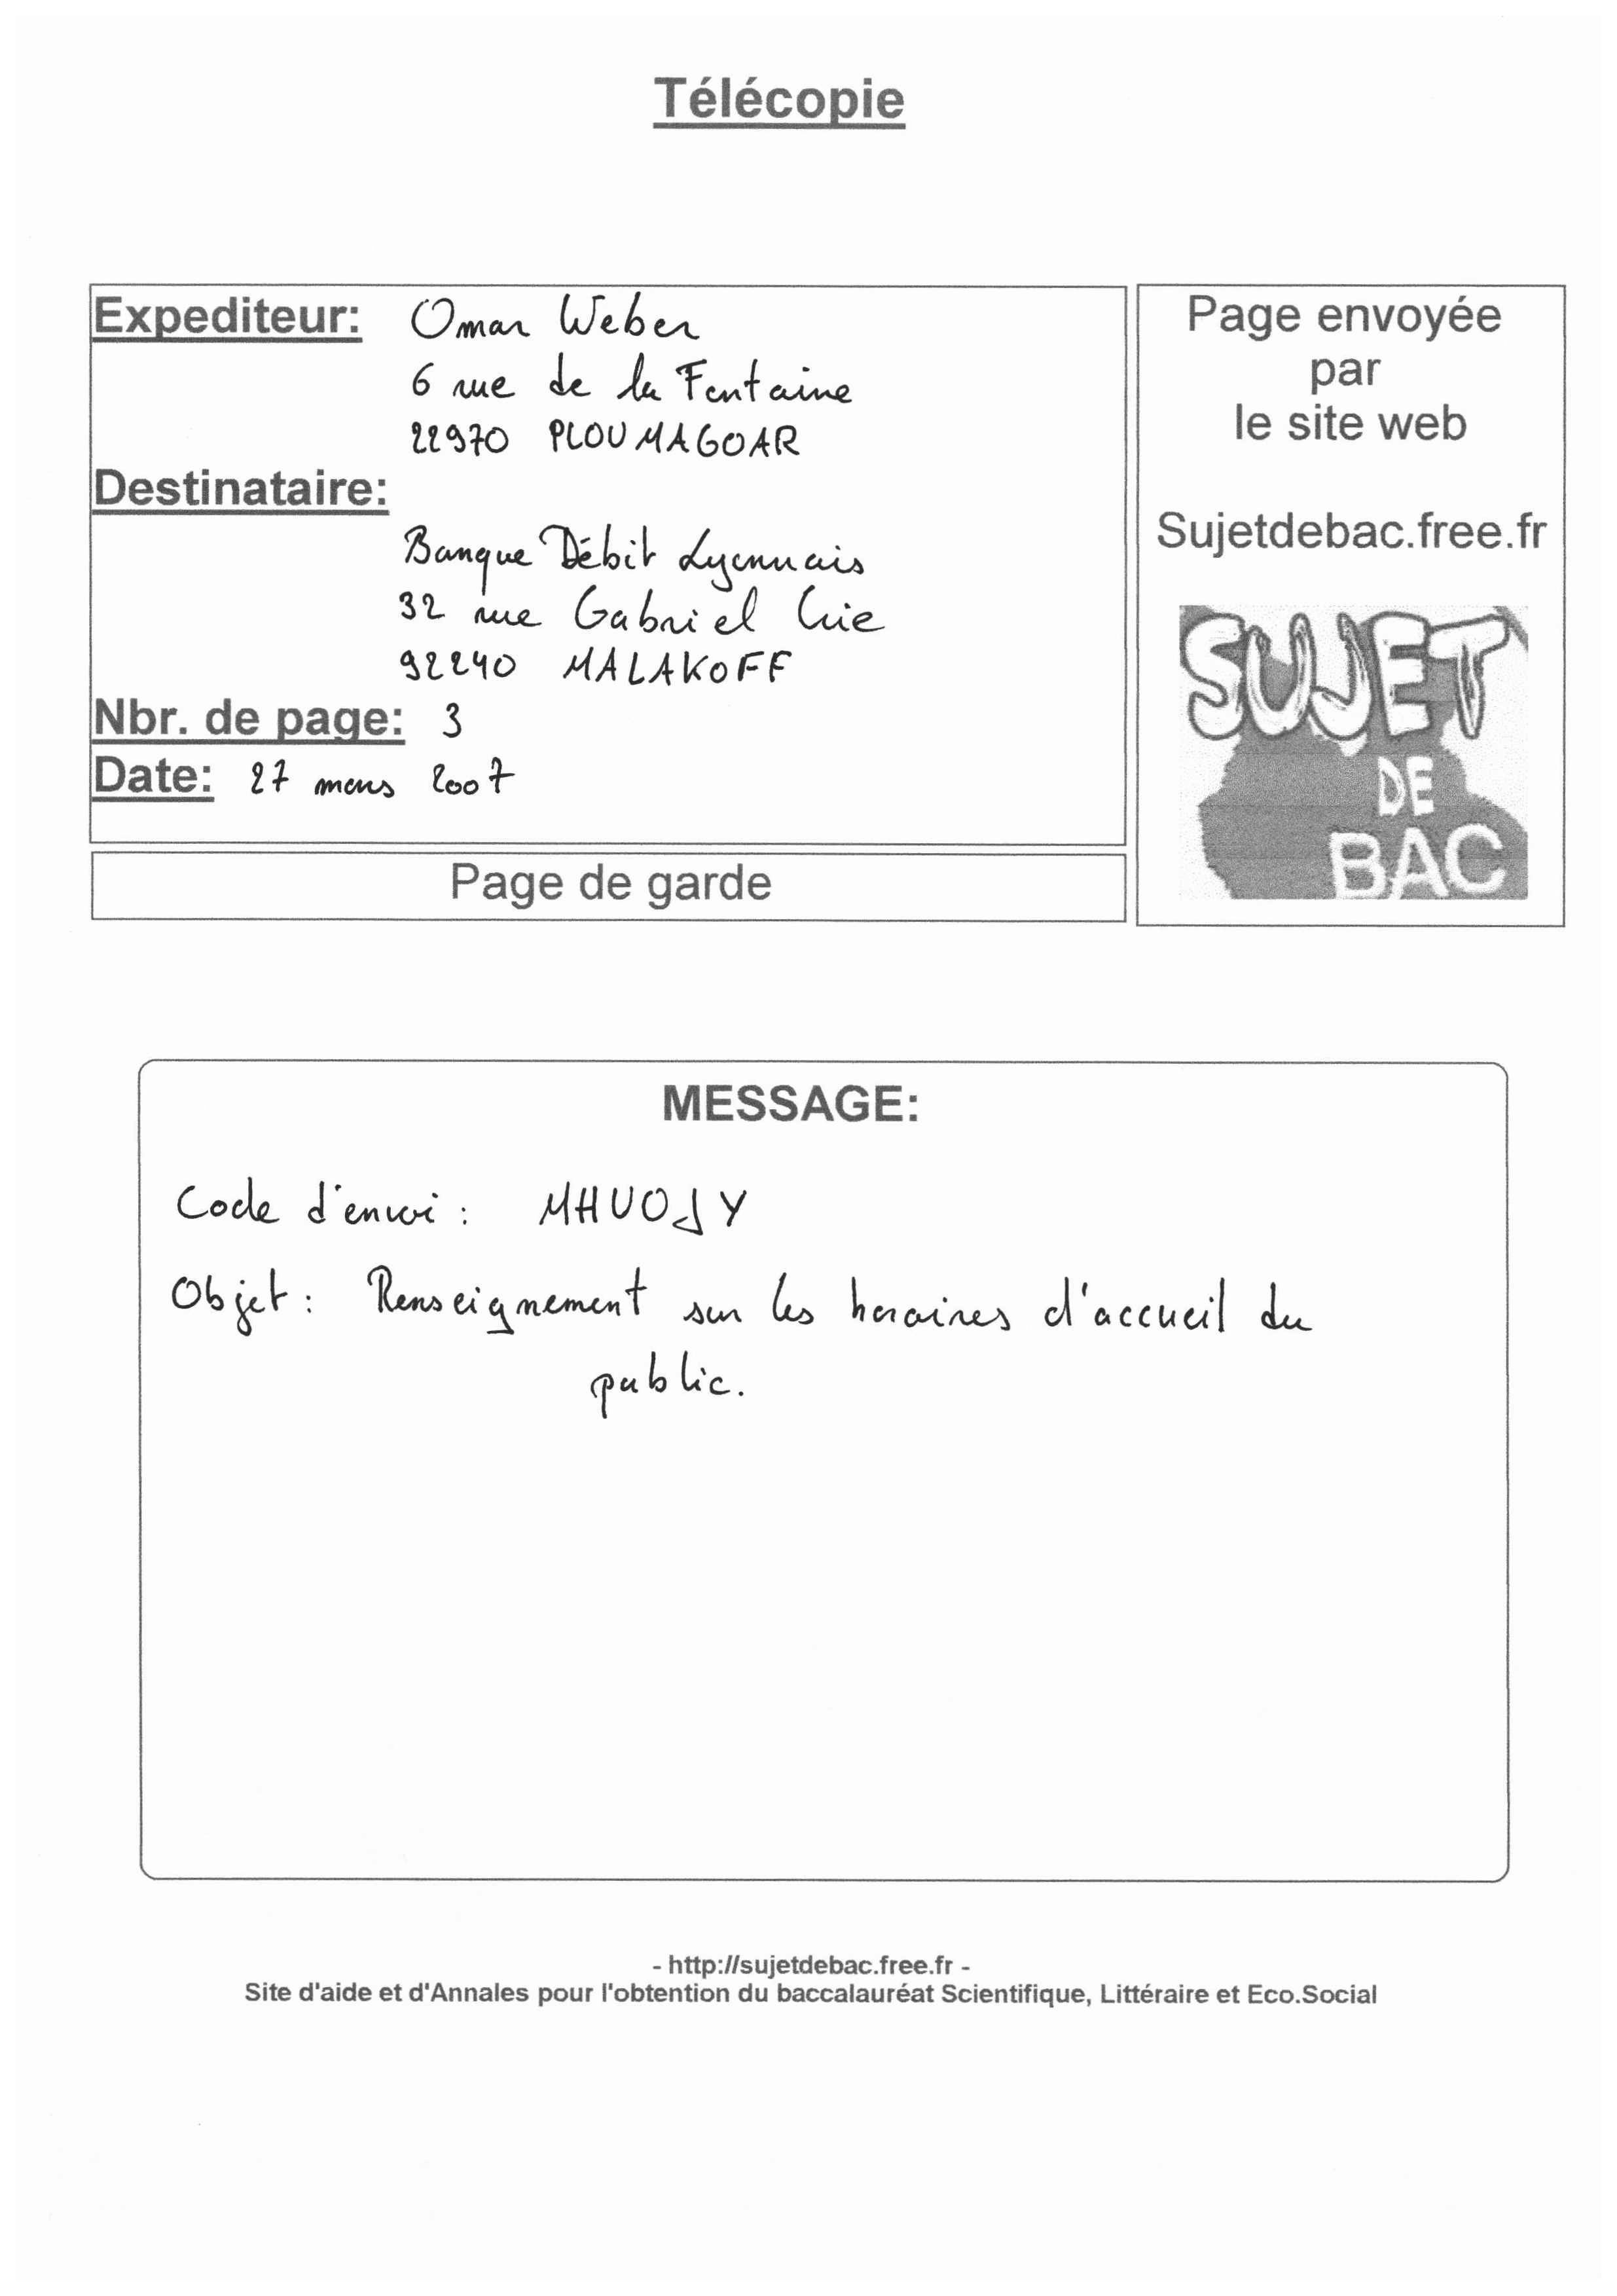 Télécopie
Expediteur: Omar Weber
6 rue de la Fontaine
22970 PLOUMAGOAR
Destinataire:
Banque Débit Lyonnais
32 rue Gabriel Crie
92240 MALAKOFF
Nbr. de page: 3
Date: 27 mars 2007
Page de garde
Page envoyée
par
le site web
Sujetdebac.free.fr
SUJET
DE
BAC
MESSAGE:
Code d'envoi : MHUOJY
Objet : Renseignement sur les horaires d'accueil du
public.
- http://sujetdebac.free.fr -
Site d'aide et d'Annales pour l'obtention du baccalauréat Scientifique, Littéraire et Eco.Social